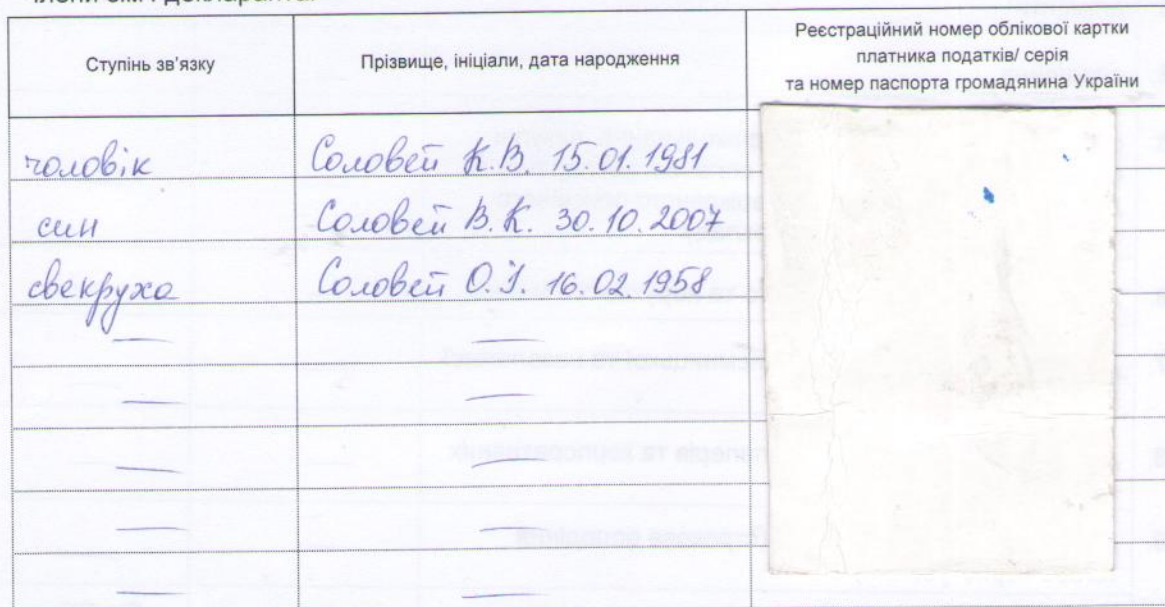 члени сім'ї декларанта:
Ступінь зв'язку
Прізвище, ініціали, дата народження
Реєстраційний номер облікової картки
платника податків/ серія
та номер паспорта громадянина України
чоловік Соловей К.В. 15.01.1981
син Соловей В.К. 30.10.2007
свекруха Соловей О.І. 16.02.1958
— —
— —
— —
— —
— —